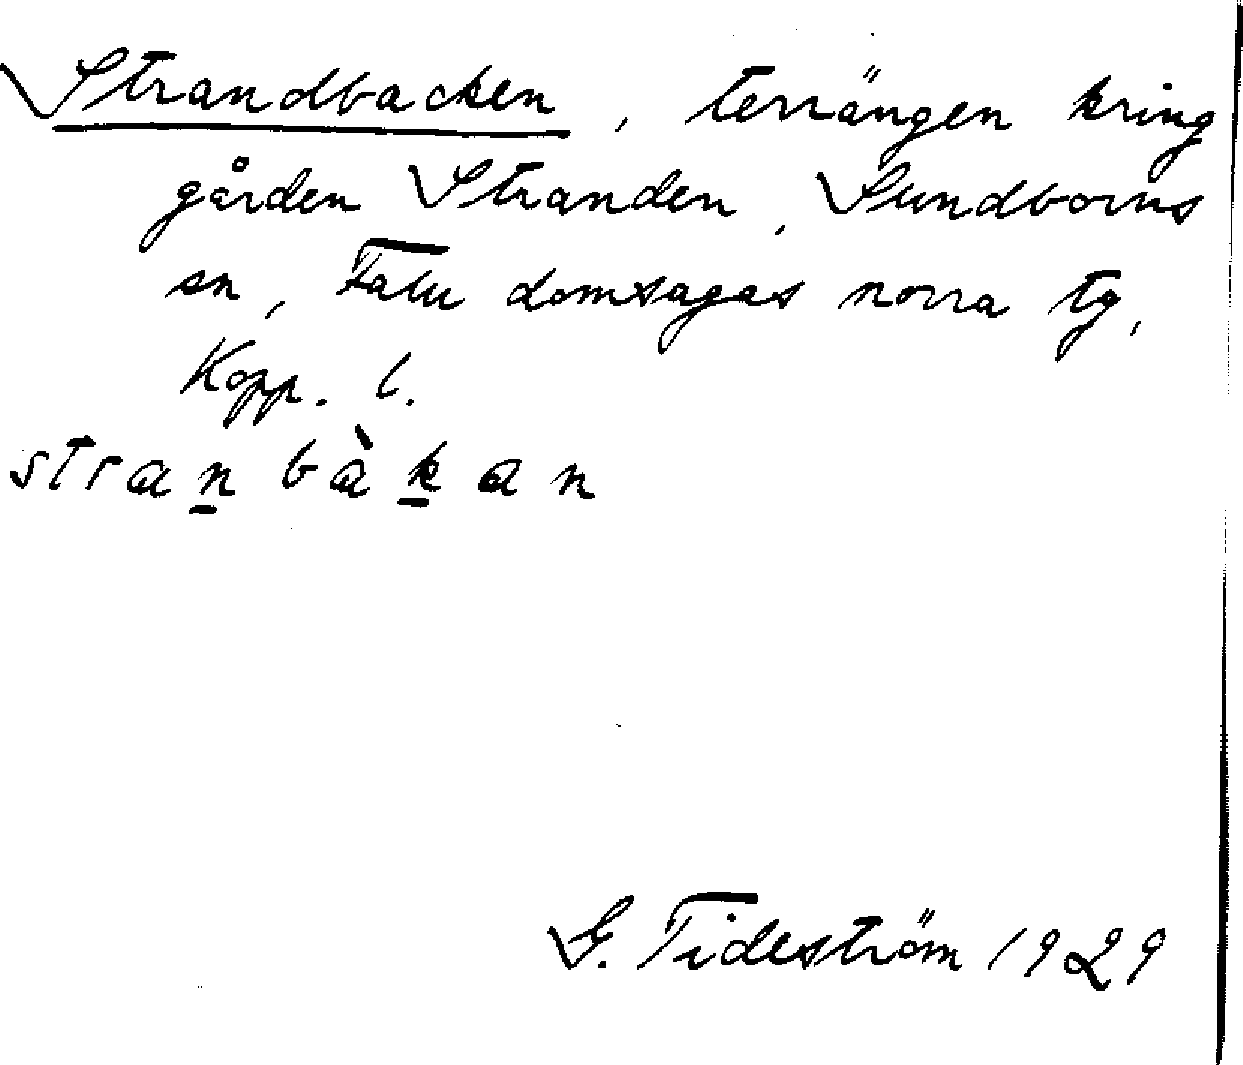 Strandbacken, terrängen kring
gården Stranden, Sundborns
sn, Falu domsagas norra tg,
Kopp. l.
stran bàkan
G. Tideström 1929